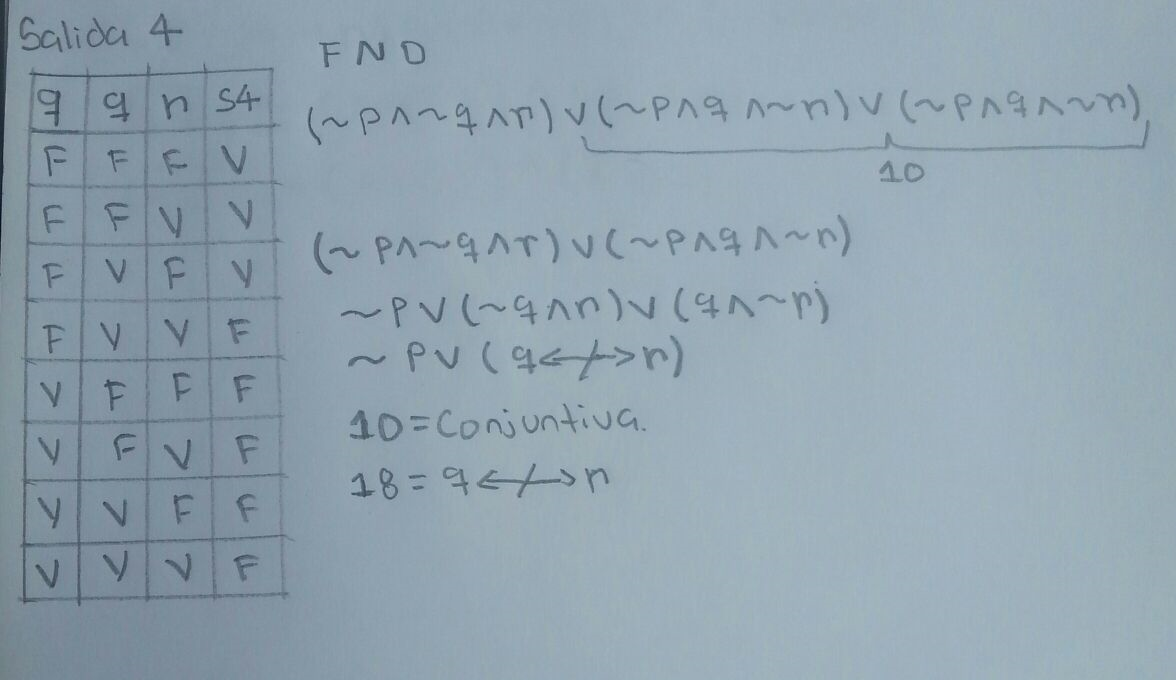 Salida 4
FND
q q r S4
F F F V
F F V V
F V F V
F V V F
V F F F
V F V F
V V F F
V V V F
(~p∧~q∧r)∨(~p∧q∧~r)∨(~p∧q∧~r)
10
(~p∧~q∧r)∨(~p∧q∧~r)
~p∨(~q∧r)∨(q∧~r)
~p∨(q<-/->r)
10=Conjuntiva.
18=q<-/->r